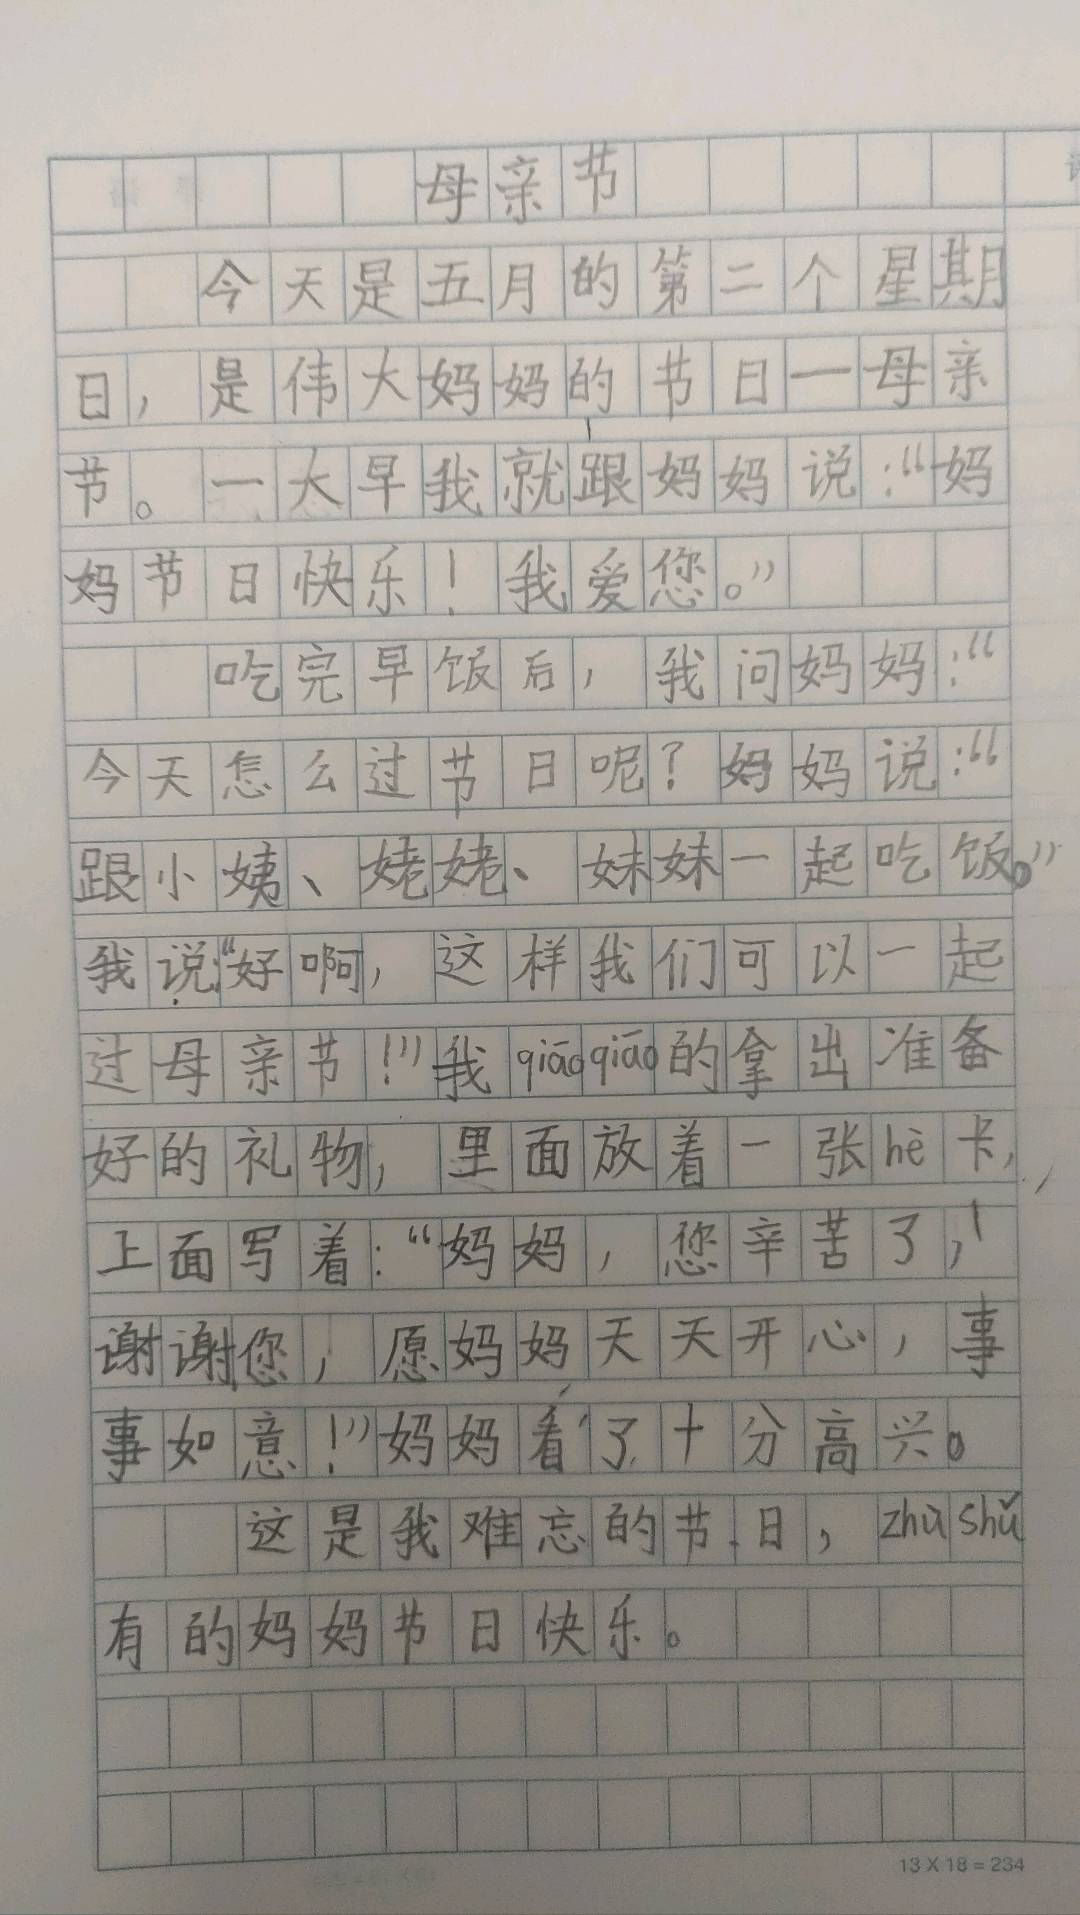 母亲节
今天是五月的第二个星期
日，是伟大妈妈的节日一母亲
节。一大早我就跟妈妈说：“妈
妈节日快乐！我爱您。”
吃完早饭后，我问妈妈：“
今天怎么过节日呢？妈妈说：“
跟小姨、姥姥、妹妹一起吃饭。”
我说：“好啊，这样我们可以一起
过母亲节！”我qiāoqiāo的拿出准备
好的礼物，里面放着一张hè卡，
上面写着：“妈妈，您辛苦了，
谢谢您，愿妈妈天天开心，事
事如意！”妈妈看了十分高兴。
这是我难忘的节日，zhù shǔ
有的妈妈节日快乐。
13 X 18 = 234